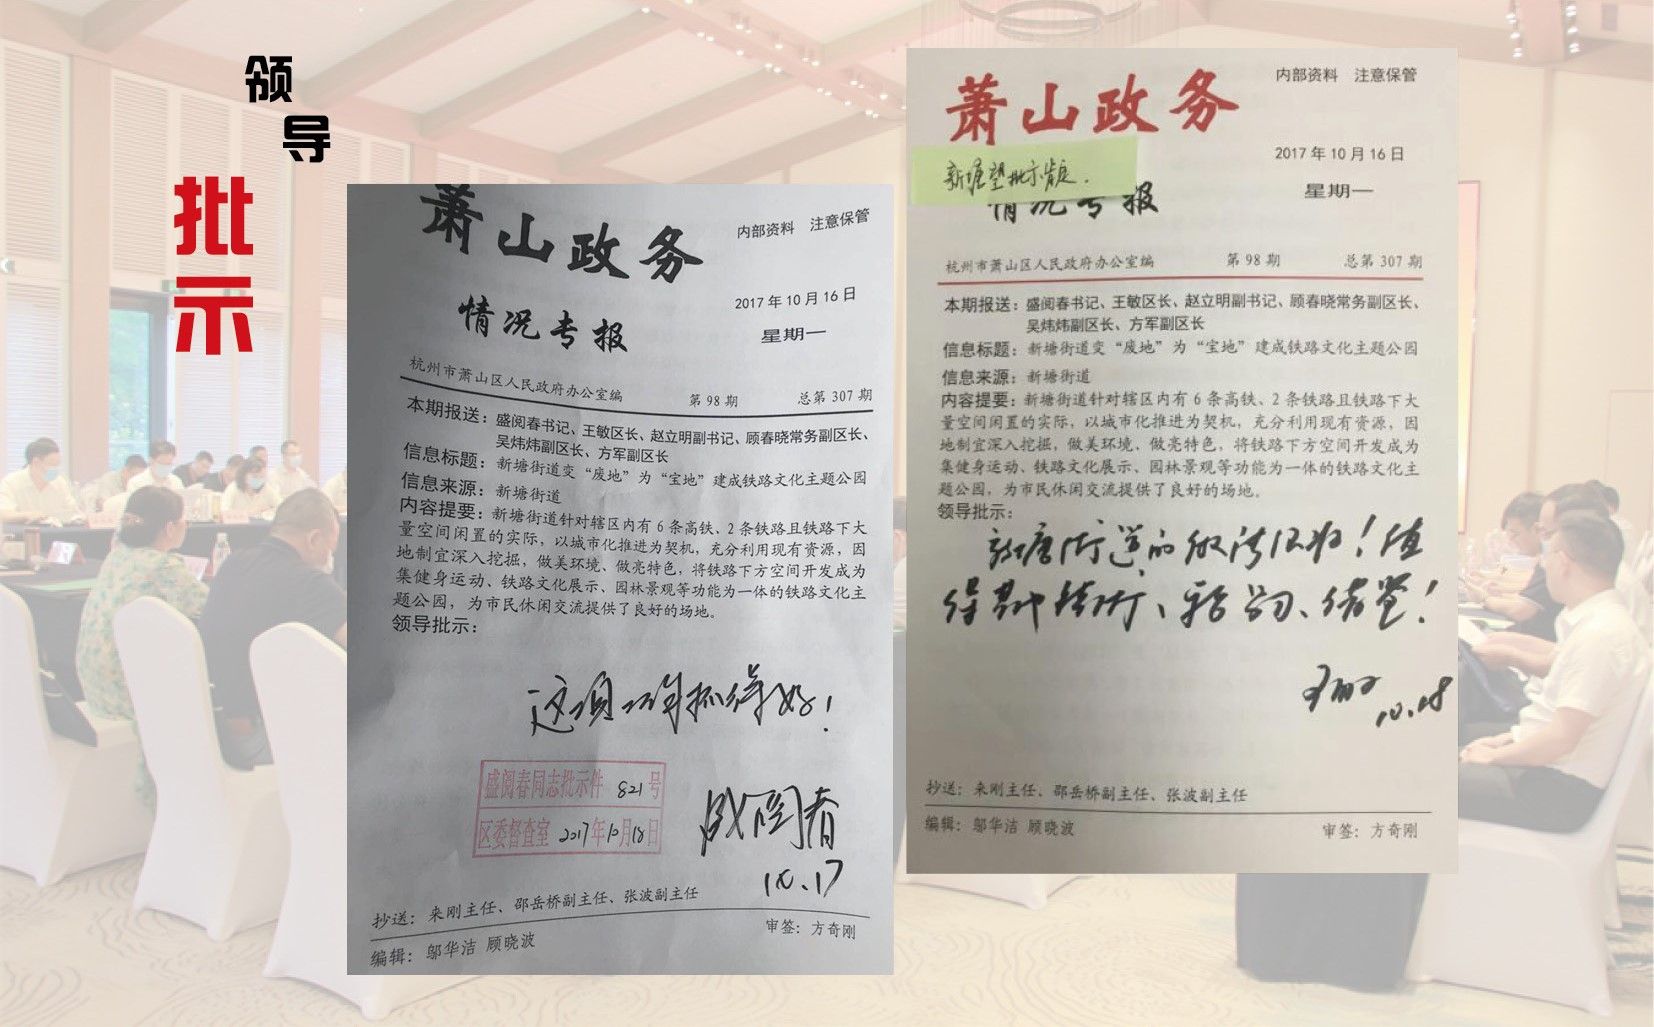 领
导
批
示
萧山政务
内部资料 注意保管
2017年10月16日
情况专报
星期一
杭州市萧山区人民政府办公室编 第98期 总第307期
本期报送：盛阅春书记、王敏区长、赵立明副书记、顾春晓常务副区长、
吴炜炜副区长、方军副区长
信息标题：新塘街道变“废地”为“宝地”建成铁路文化主题公园
信息来源：新塘街道
内容提要：新塘街道针对辖区内有6条高铁、2条铁路且铁路下大
量空间闲置的实际，以城市化推进为契机，充分利用现有资源，因
地制宜深入挖掘，做美环境、做亮特色，将铁路下方空间开发成为
集健身运动、铁路文化展示、园林景观等功能为一体的铁路文化主
题公园，为市民休闲交流提供了良好的场地。
领导批示：
这项工作抓得好！
盛阅春同志批示件 821号
区委督查室 2017年10月18日
盛阅春
10.17
抄送：来刚主任、邵岳桥副主任、张波副主任
编辑：邬华洁 顾晓波 审签：方奇刚
萧山政务
内部资料 注意保管
2017年10月16日
新塘 批示
情况专报
星期一
杭州市萧山区人民政府办公室编 第98期 总第307期
本期报送：盛阅春书记、王敏区长、赵立明副书记、顾春晓常务副区长、
吴炜炜副区长、方军副区长
信息标题：新塘街道变“废地”为“宝地”建成铁路文化主题公园
信息来源：新塘街道
内容提要：新塘街道针对辖区内有6条高铁、2条铁路且铁路下大
量空间闲置的实际，以城市化推进为契机，充分利用现有资源，因
地制宜深入挖掘，做美环境、做亮特色，将铁路下方空间开发成为
集健身运动、铁路文化展示、园林景观等功能为一体的铁路文化主
题公园，为市民休闲交流提供了良好的场地。
领导批示：
新塘街道的做法很好！值
得其他镇街、学习、借鉴！
王敏
10.18
抄送：来刚主任、邵岳桥副主任、张波副主任
编辑：邬华洁 顾晓波 审签：方奇刚